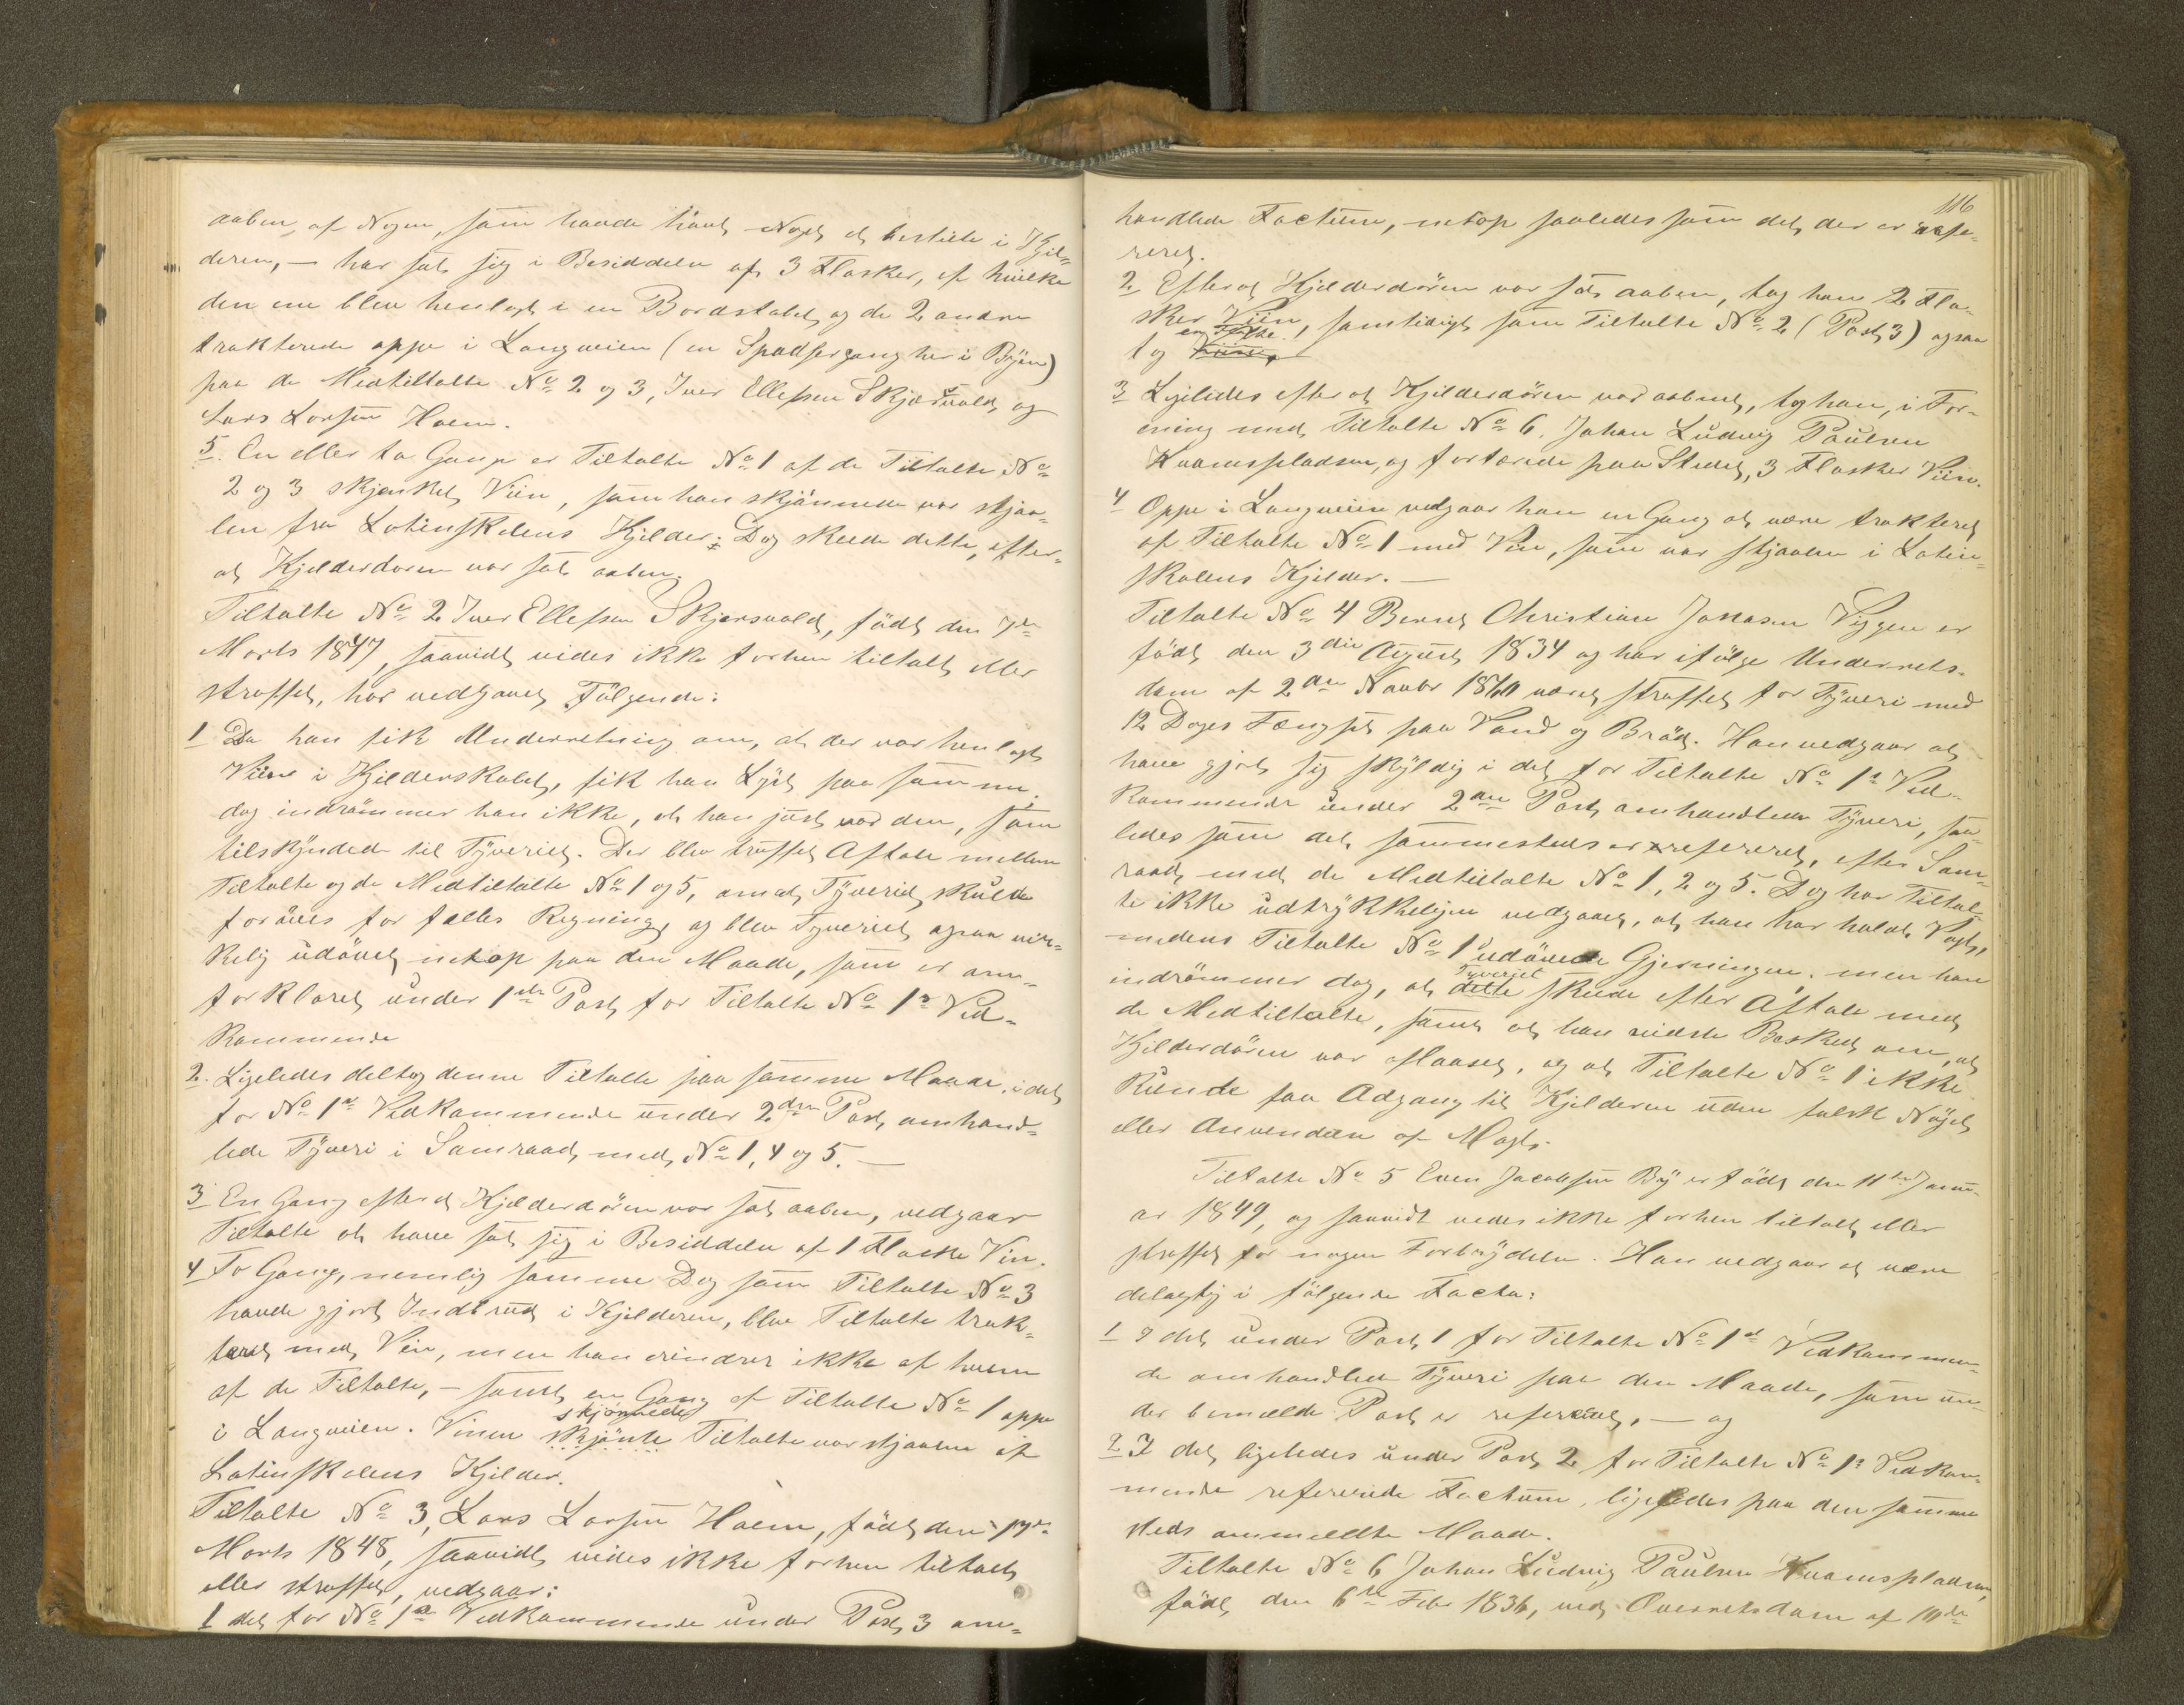 aaben, af Nogen, som havde havt Noget at bestille i Kjel-
deren, – har sat sig i Besiddelse af 3 Flasker, af hvilke
den ene blev henlagt i en Bordstabel, og de 2 andre
trakterede oppe i Langveien (en Spadsergang her i Byen)
paa de Medtiltalte No 2 og 3, Iver Ellefsen Skjersvold, og
Lars Larsen Haem.
5. En eller to Gange er Tiltalte No 1 af de Tiltalte No
2 og 3 skjenket Viin, som han skjønnede var stjaa-
len fra Latinskolens Kjelder; Dog skede dette, efter-
at Kjelderdøren var sat aaben.
Tiltalte No 2 Iver Ellefsen Skjersvold, født den 7de
Marts 1847, saavidt vides ikke forhen tiltalt eller
straffet, har vedgaaet Følgende:
1 Da han fik Underretning om, at der var henlagt
Viin i Kjelderskabet, fik han Lyst paa samme,
dog indrømmer han ikke, at han just var den, som
tilskyndede til Tyveriet. Der blev truffet Aftale mellem
Tiltalte og de Medtiltalte No 1 og 5, om at Tyveriet skulde
forøves for fælles Regning, og blev Tyveriet ogsaa vir-
kelig udøvet netop paa den Maade, som er om-
forklaret under 1ste Post for Tiltalte No 1s Ved-
kommende
2. Ligeledes deltog denne Tiltalte paa samme Maade i det
for No 1s Vedkommende under 2den Post omhand-
lede Tyveri i Samraad med No 1, 4 og 5. –
3 En Gang efterat Kjelderdøren var sat aaben, vedgaar
Tiltalte at have sat sig i Besiddelse af 1 Flaske Vin.
4 To Gange, nemlig samme Dag som Tiltalte No 3
havde gjort Indbrud i Kjelderen, blev Tiltalte trak-
teret med Vin, men han erindrer ikke af hvem
af de Tiltalte, – samt en Gang af Tiltalte No 1 oppe
i Langveien. Vinen skjønte skjønnede Tiltalte var stjaalen af
Latinskolens Kjelder.
Tiltalte No 3, Lars Larsen Haem, født den 17de
Marts 1848, saavidt vides ikke forhen tiltalt
eller straffet, vedgaar:
1 det for No 1s Vedkommende under Post 3 om-
116
handlede Factum, netop saaledes som det der er refe-
reret.
2 Efterat Kjelderdøren var sat aaben, tog han 2 Fla-
sker Viin, samtidigt som Tiltalte No 2 (Post 3) ogsaa
tog en Flaske.
3 Ligeledes efterat Kjelderdøren var aabnet, tog han, i For-
ening med Tiltalte No 6. Johan Ludvig Paulsen
Kvamspladsen, og fortærede paa Stedet, 3 Flasker Viin.
4 Oppe i Langveien vedgaar han en Gang at være trakteret
af Tiltalte No 1 med Vin, som var stjaalen i Latin-
skolens Kjelder. –
Tiltalte No 4 Bernt Christian Jonasen Viggen er
født den 3die August 1834 og har ifølge Underrets-
dom af 2den Novbr 1860 været straffet for Tyveri med
12 Dages Fængsel paa Vand og Brød. Han vedgaar at
have gjort sig skyldig i det for Tiltalte No 1s Ved-
kommende under 2den Post omhandlede Tyveri, saa-
ledes som det sammesteds er refereret, efter Sam-
raad med de Medtiltalte No 1, 2 og 5. Dog har Tiltal-
te ikke udtrykkeligen vedgaaet, at han har holdt Vagt,
medens Tiltalte No 1 udøvede Gjerningen, men han
indrømmer dog, at dette Tyveriet skede efter Aftale med
de Medtiltalte, samt at han vidste Besked om, at
Kjelderdøren var aflaaset, og at Tiltalte No 1 ikke
kunde faa Adgang til Kjelderen uden falsk Nøgel
eller Anvendelse af Magt.
Tiltalte No 5 Even Jacobsen By er født den 11te Janu-
ar 1849, og saavidt vides ikke forhen tiltalt eller
straffet for nogen Forbrydelse. Han vedgaar at være
delagtig i følgende Facta:
1 I det under Post 1 for Tiltalte No 1s Vedkommen-
de omhandlede Tyveri paa den Maade, som un-
der bemeldte Post er refereret, – og
2 I det ligeledes under Post 2 for Tiltalte No 1s Vedkom-
mende refererede Factum, ligeledes paa den samme
steds ommeldte Maade.
Tiltalte No 6 Johan Ludvig Paulsen Kvamspladsen,
født den 6te Febr 1836, ved Overretsdom af 10de